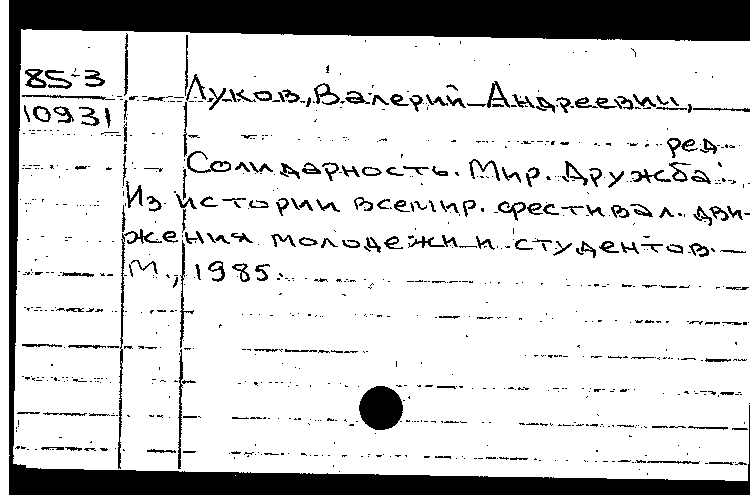 85-3
10931
Луков, Валерий Андреевич,
ред.
Солидарность. Мир. Дружба:
Из истории всемир. фестивал. дви-
жения молодежи и студентов. —
М., 1985.